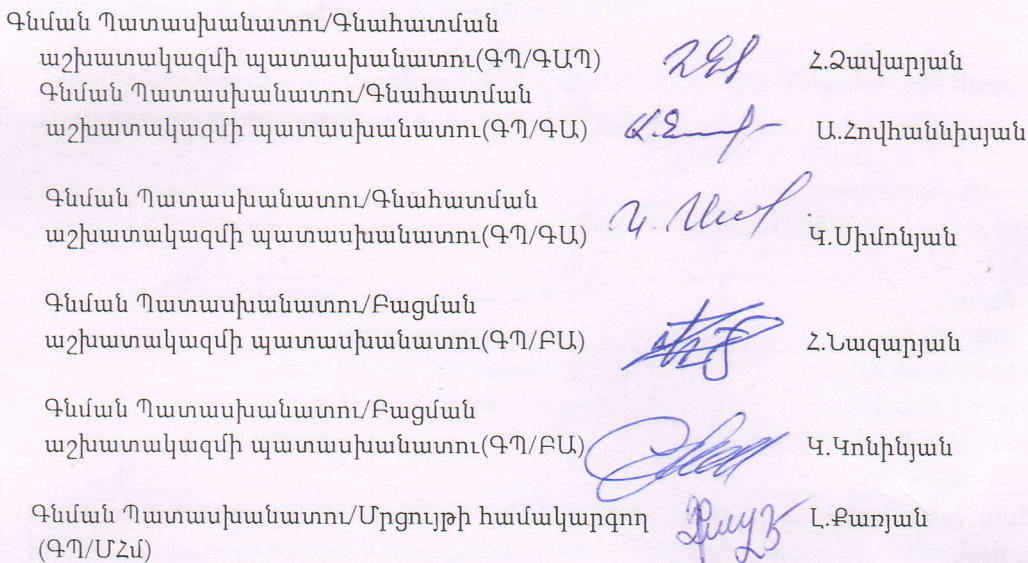 Գնման Պատասխանատու/Գնահատման
աշխատակազմի պատասխանատու(ԳՊ/ԳԱՊ) Հ.Զավարյան
Գնման Պատասխանատու/Գնահատման
աշխատակազմի պատասխանատու(ԳՊ/ԳԱ) Ա.Հովհաննիսյան
Գնման Պատասխանատու/Գնահատման
աշխատակազմի պատասխանատու(ԳՊ/ԳԱ) Կ.Սիմոնյան
Գնման Պատասխանատու/Բացման
աշխատակազմի պատասխանատու(ԳՊ/ԲԱ) Հ.Նազարյան
Գնման Պատասխանատու/Բացման
աշխատակազմի պատասխանատու(ԳՊ/ԲԱ) Կ.Կոնինյան
Գնման Պատասխանատու/Մրցույթի համակարգող Լ.Քառյան
(ԳՊ/ՄՀմ)